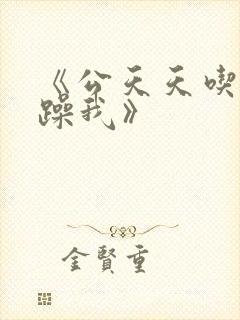 《公天天喫
躁我》
金賢重